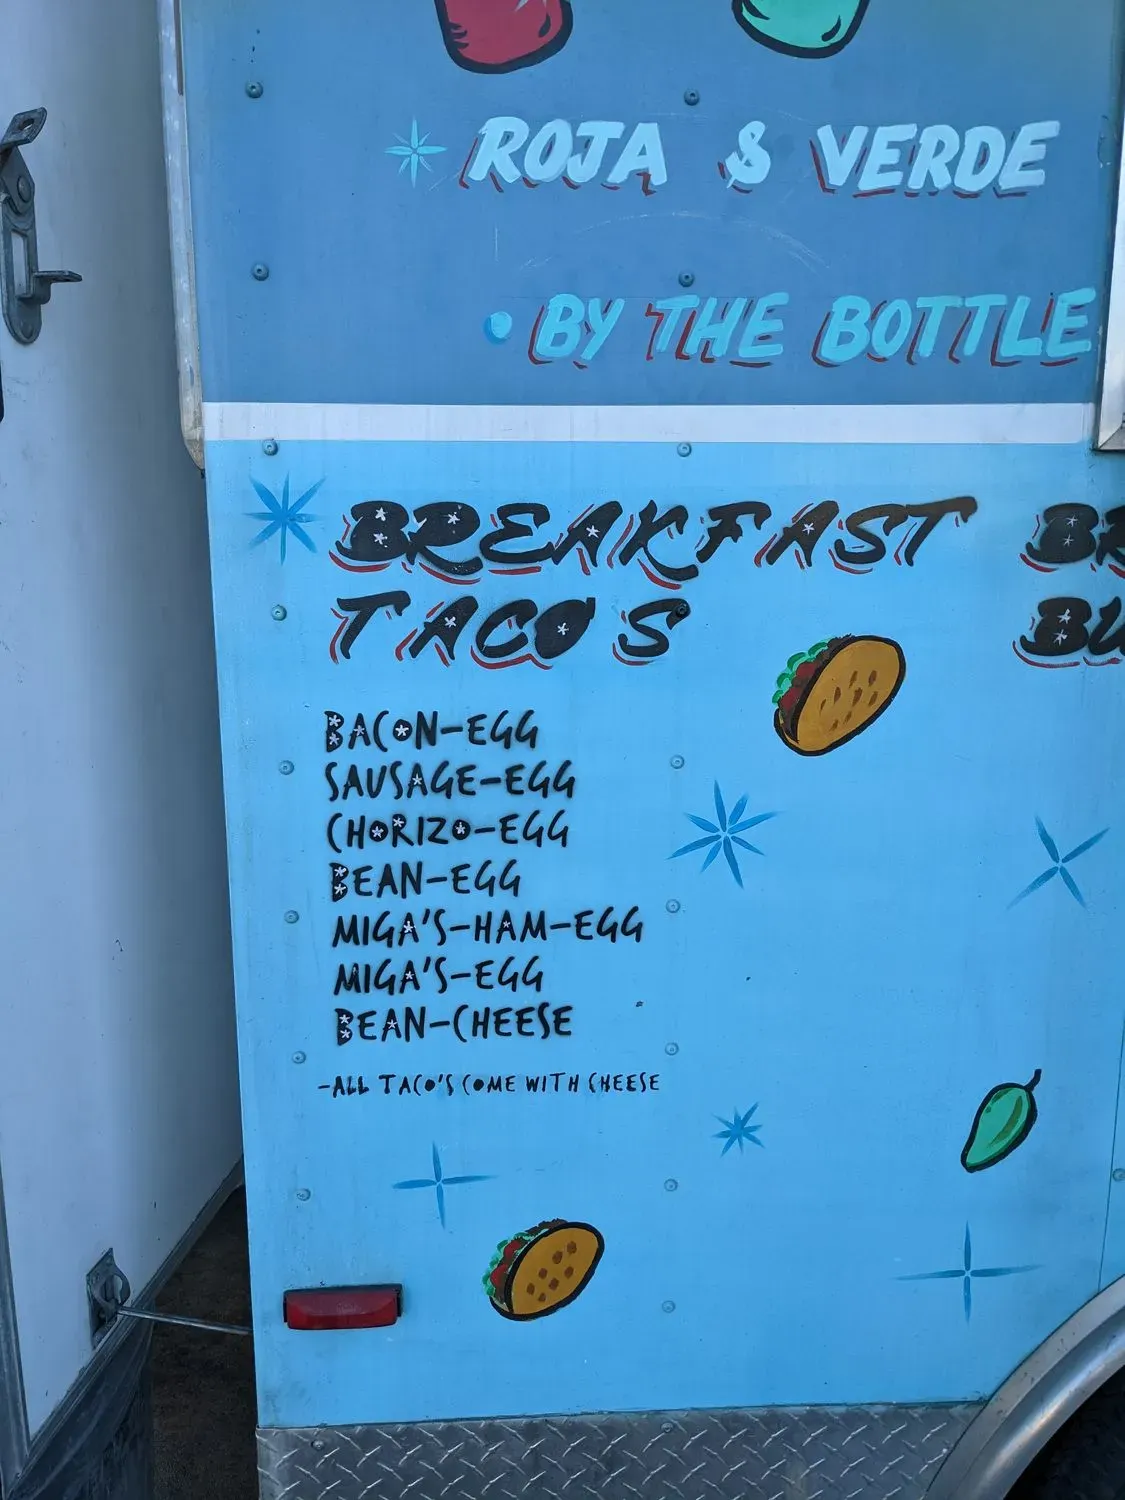 ROJA & VERDE
• BY THE BOTTLE
BREAKFAST
TACO'S
BACON-EGG
SAUSAGE-EGG
CHORIZO-EGG
BEAN-EGG
MIGA'S-HAM-EGG
MIGA'S-EGG
BEAN-CHEESE
-ALL TACO'S COME WITH CHEESE